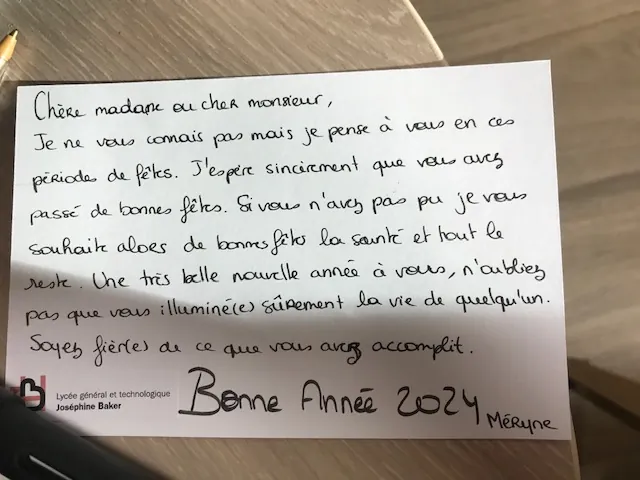 Chère madame ou cher monsieur,
Je ne vous connais pas mais je pense à vous en ces
périodes de fêtes. J'espère sincèrement que vous avez
passé de bonnes fêtes. Si vous n'avez pas pu je vous
souhaite alors de bonnes fêtes la santé et tout le
reste. Une très belle nouvelle année à vous, n'oubliez
pas que vous illuminé(e) sûrement la vie de quelqu'un.
Soyez fièr(e) de ce que vous avez accomplit.
Lycée général et technologique
Joséphine Baker
Bonne Année 2024
MÉRYNE